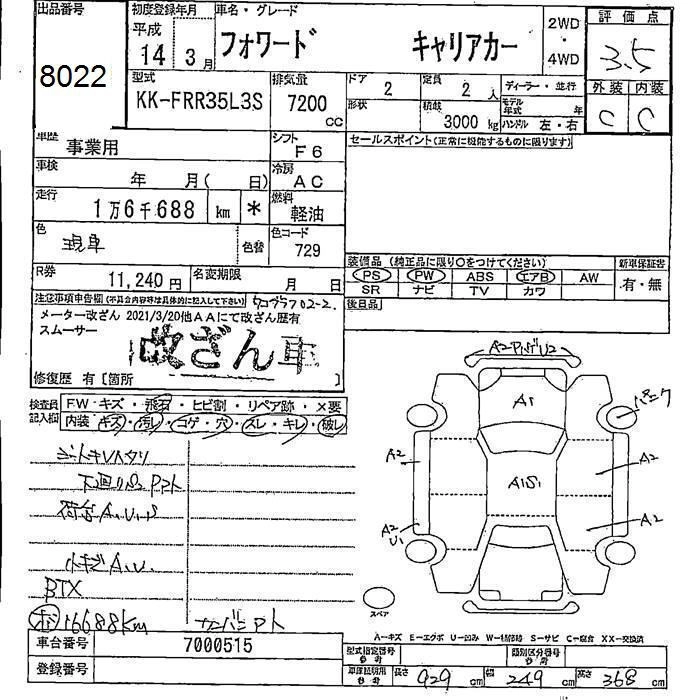 出品番号
8022
初度登録年月
平成
14 3月
車名・グレード
フォワード キャリアカー
2WD
・
4WD
評価点
3.5
外装 内装
C C
型式
KK-FRR35L3S
排気量
7200
cc
ドア
2
定員
2 人
ディーラー・並行
形状
積載
3000 kg
モデル年式 年
ハンドル 左・右
車歴
事業用
シフト
F6
セールスポイント(正常に機能するものに限ります)
車検
年 月( 日)
冷房
AC
走行
1万6千688 km *
燃料
軽油
色
現車
色替
色コード
729
R券
11,240円
名変期限
月 日
装備品(純正品に限り○をつけてください)
PS PW ABS エアB AW
SR ナビ TV カワ
新車保証書
有・無
後日品
注意事項申告欄(不具合内容等は具体的に記入して下さい)
メーター改ざん 2021/3/20他AAにて改ざん歴有
スムーサー
改ざん車
修復歴 有[箇所 ]
検査員
記入欄
FW キズ・飛石・ヒビ割・リペア跡・×要
内装 キズ・汚レ・コゲ・穴・スレ・キレ・破レ
荷台A.U.S
小キズA.U.
BTX
16688km
A1
A1S1
A2
A2
A2
U1
A2
スペア
A-キズ E-エクボ U-凹み W-補修跡 S-サビ C-腐食 XX-交換済
車台番号
7000515
登録番号
型式指定番号
類別区分番号
長さ 929 cm 幅 249 cm 高さ 368 cm